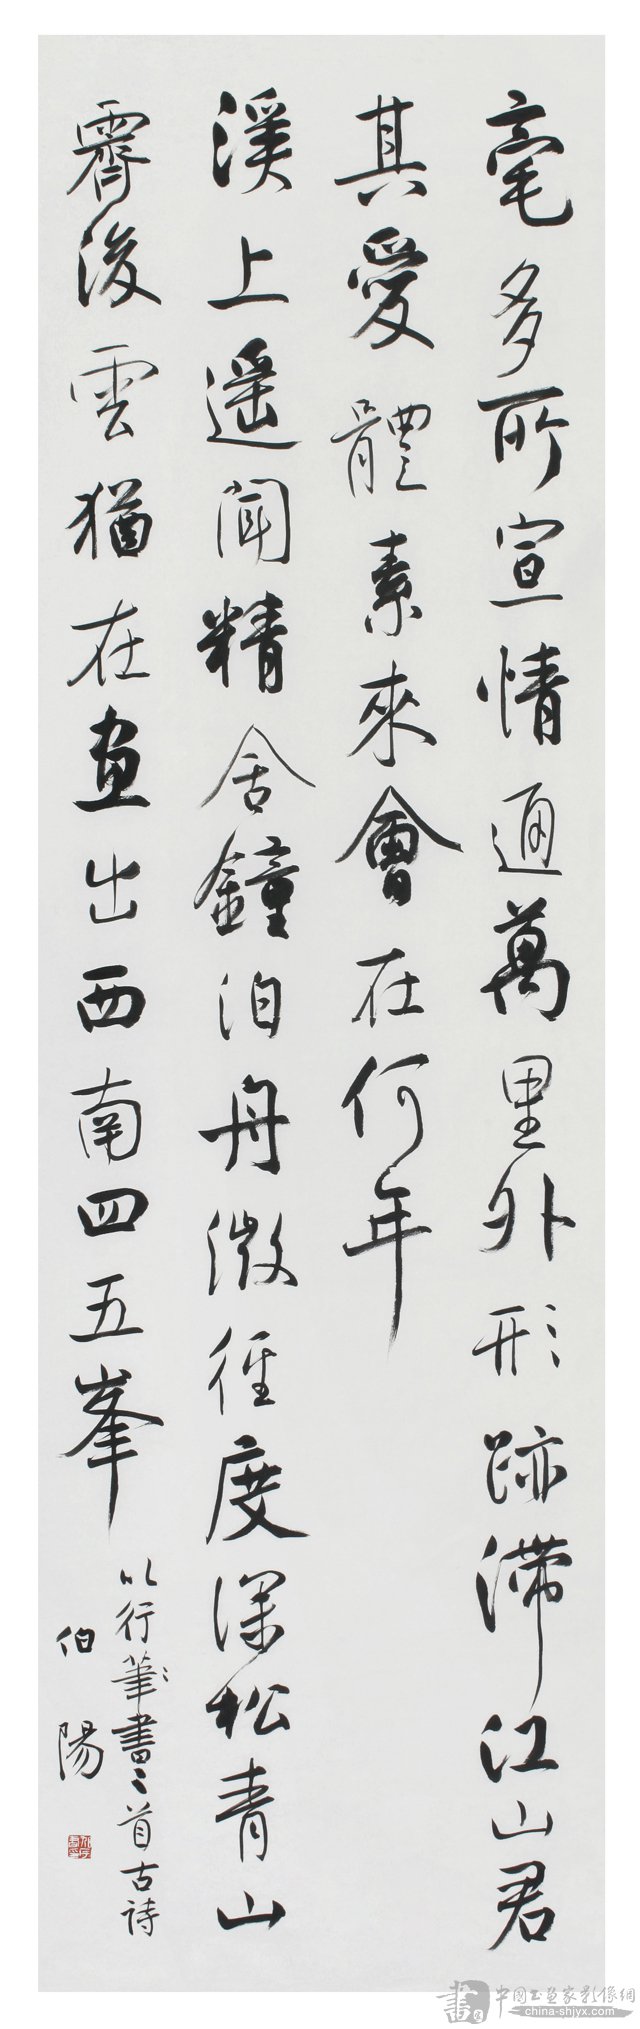 毫多所宣情通萬里外形跡滯江山君
其愛體素來會在何年
溪上遥聞精舍鐘泊舟微徑度深松青山
霽後雲猶在畫出西南四五峯
以行筆書二首古詩
伯陽
書
中國书畫家影像網
china-shjyx.com